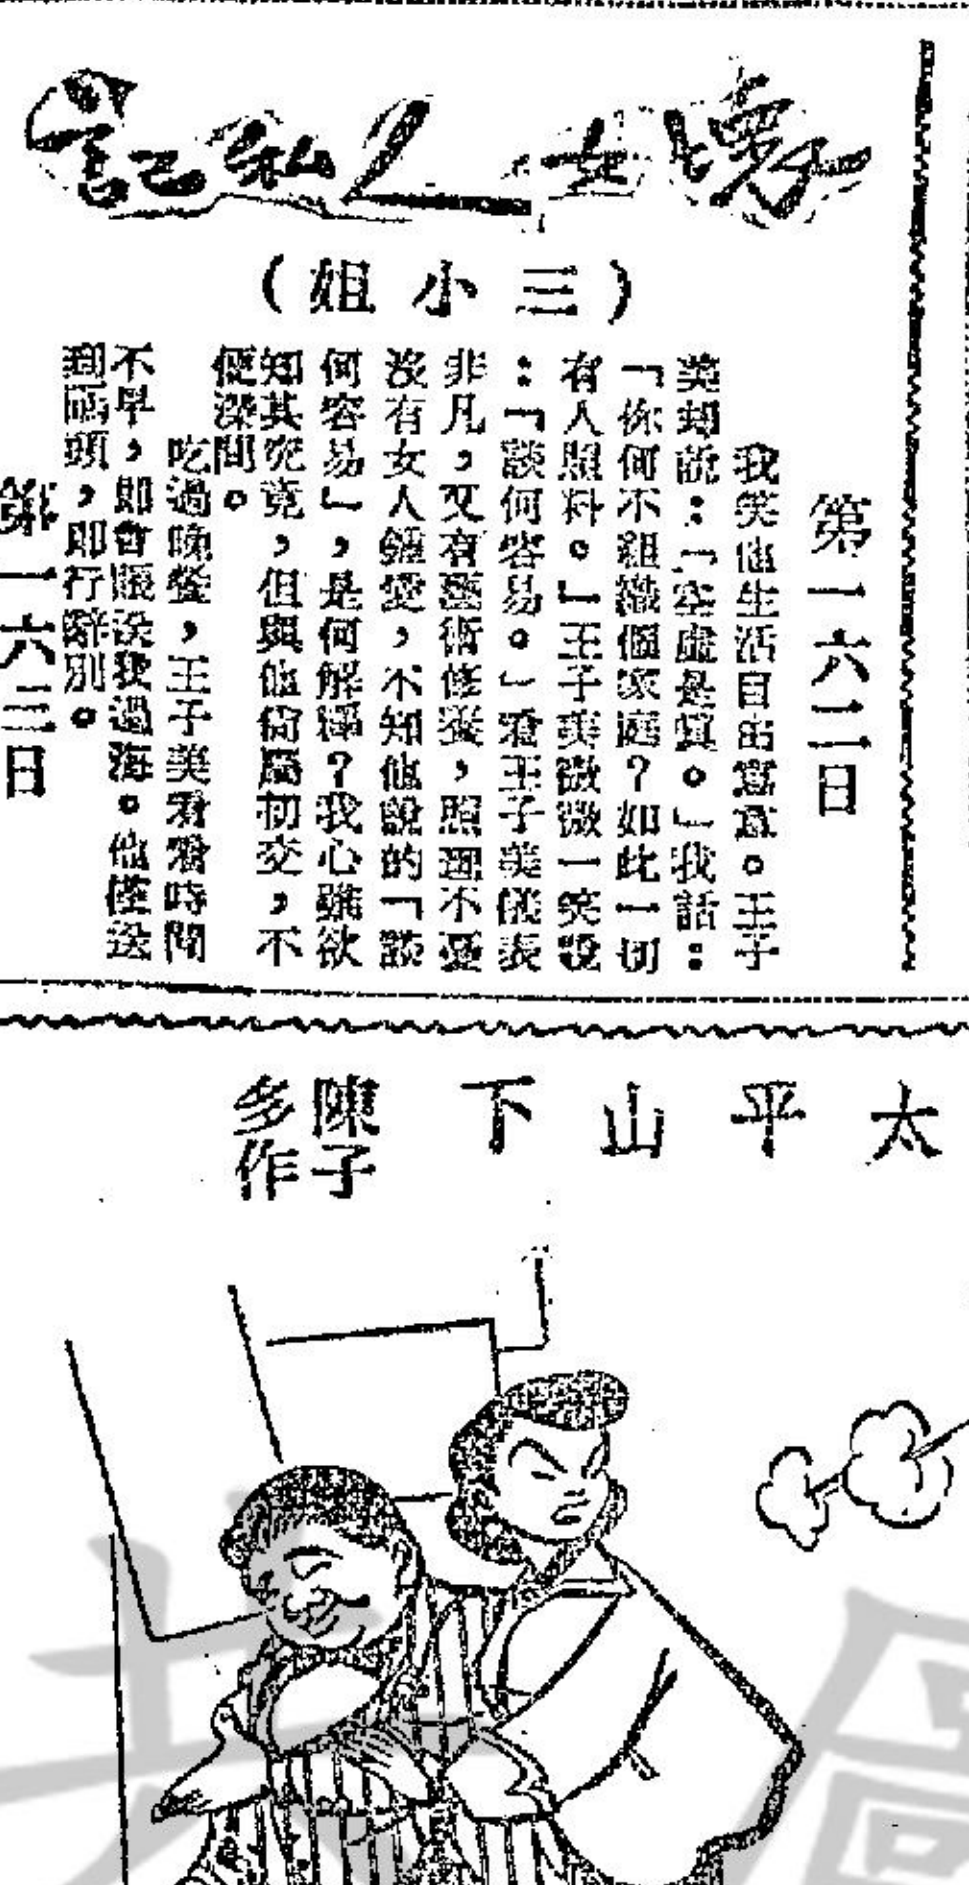 嬌女人私記
(三小姐)
第一六二日
我笑他生活自由寫意。王子
美却說：「空虛是眞。」我話：
「你何不組織個家庭？如此一切
有人照料。」王子美微微一笑說
：「談何容易。」看王子美儀表
非凡，又有藝術修養，照理不憂
沒有女人鍾愛，不知他說的「談
何容易」，是何解釋？我心雖欲
知其究竟，但與他尙屬初交，不
便深問。
吃過晚餐，王子美看看時間
不早，即會賬送我過海。他僅送
到碼頭，即行辭別。
第一六三日
太平山下
陳子
多作